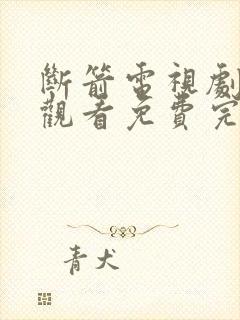 斷箭電視劇
觀看免費完
青犬